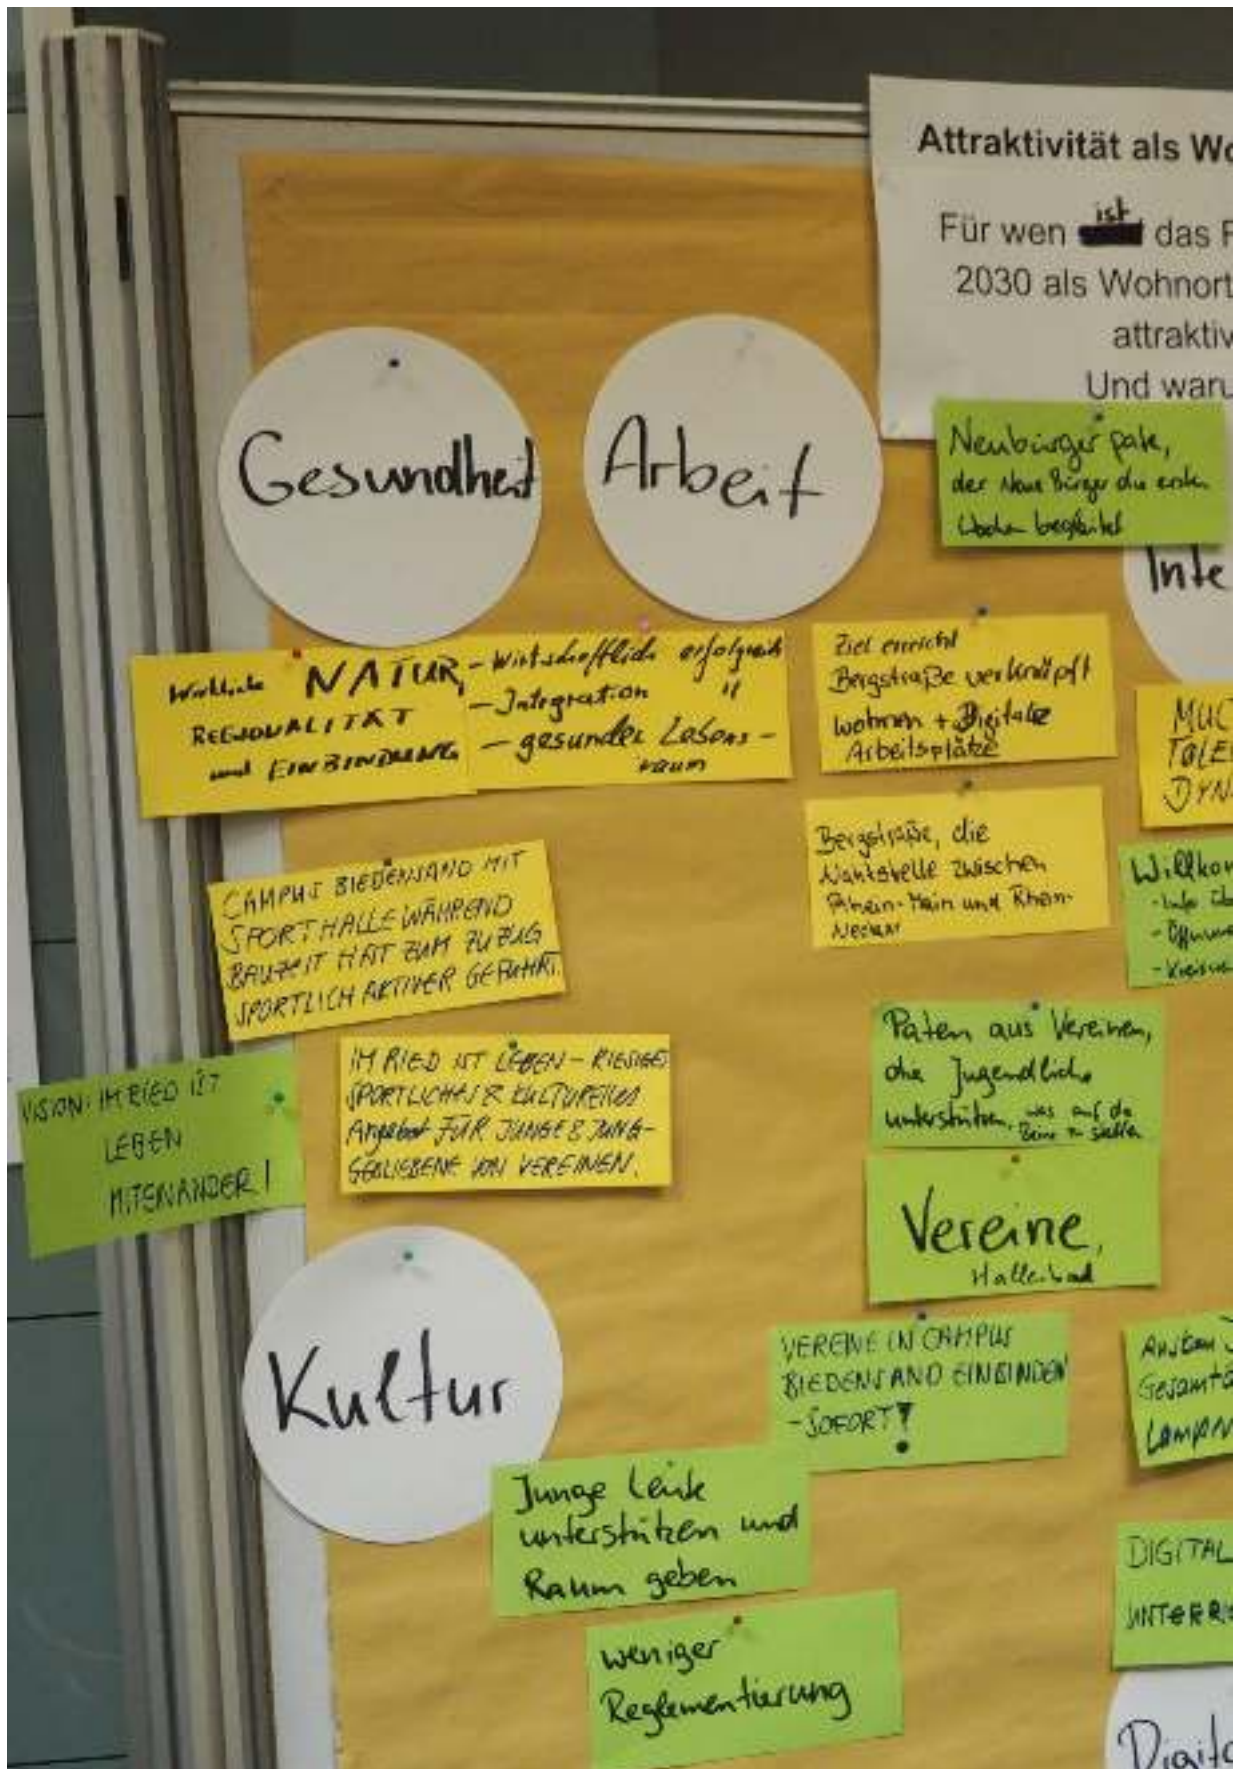 Attraktivität als Wo
Für wen ist das R
2030 als Wohnort
attraktiv
Und waru
Gesundheit
Arbeit
Neubürger pate,
der Neue Bürger die ersten
Wochen begleitet
Inte
NATUR,
REGIONALITÄT
und EINBINDUNG
- Wirtschaftlich erfolgreich
- Integration "
- gesunder Lebens-
raum
Ziel erreicht
Bergstraße verknüpft
wohnen + Digitale
Arbeitsplätze
MUL
TOLE
DYN
Bergstraße, die
zwischen
Rhein-Main und Rhein-
Neckar
Willkom
- Info üb
CAMPUS BIEDENSAND MIT
SPORTHALLE WÄHREND
BAUZEIT HAT ZUM ZUZUG
SPORTLICH AKTIVER GEFÜHRT.
Paten aus Vereinen,
die Jugendliche
unterstützen, was auf die
Beine zu stellen
IM RIED IST LEBEN - RIESIGES
SPORTLICHES & KULTURELLES
Angebot FÜR JUNGE & JUNG-
GEBLIEBENE VON VEREINEN.
VISION: IM RIED IST
LEBEN
MITEINANDER!
Vereine,
Hallenbad
Kultur
VEREINE IN CAMPUS
BIEDENSAND EINBINDEN
- SOFORT!
Gesamt
LAMP
Junge Leute
unterstützen und
Raum geben
DIGITAL
UNTERRI
weniger
Reglementierung
Digita